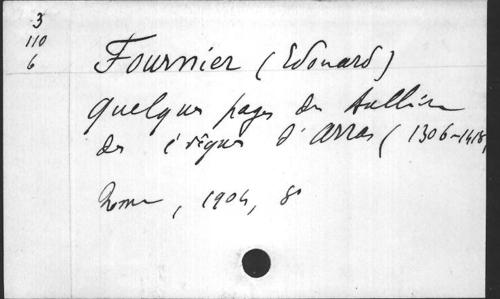 3
110
6
Fournier (Edouard)
quelques pages du bullaire
des évêques d'Arras (1306-1418)
Rome, 1904, 8°